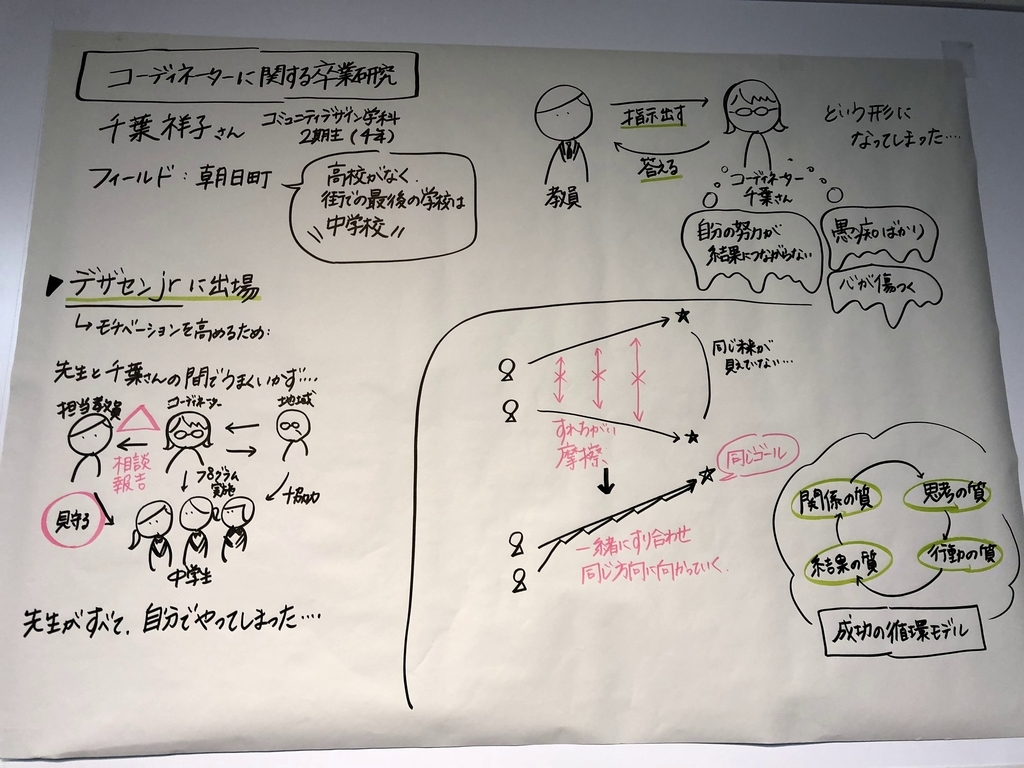 コーディネーターに関する卒業研究
千葉祥子さん
コミュニティデザイン学科
2期生(4年)
フィールド:朝日町
高校がなく、
街での最後の学校は
中学校
デザセンjrに出場
モチベーションを高めるため:
先生と千葉さんの間でうまくいかず‥‥
担当教員
コーディネーター
地域
相談
報告
プログラム
実施
協力
見守る
中学生
先生がすべて、自分でやってしまった‥‥
指示出す
答える
教員
コーディネーター
千葉さん
という形に
なってしまった‥‥
自分の努力が
結果につながらない
愚痴ばかり
心が傷つく
同じ未来が
見えていない‥‥
すれちがい
摩擦
同じゴール
一緒にすり合わせ
同じ方向に向かっていく.
関係の質
思考の質
行動の質
結果の質
成功の循環モデル